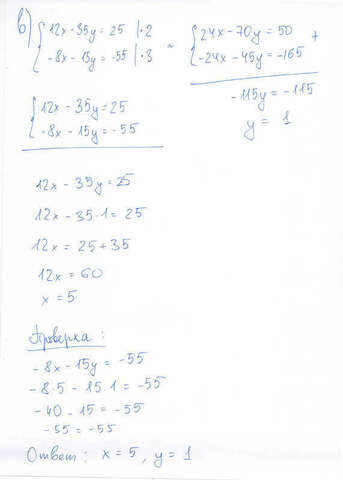 в)
{ 12x - 35y = 25 | ·2
{ -8x - 15y = -55 | ·3
~
{ 24x - 70y = 50 +
{ -24x - 45y = -165
-115y = -115
y = 1
{ 12x - 35y = 25
{ -8x - 15y = -55
12x - 35y = 25
12x - 35·1 = 25
12x = 25 + 35
12x = 60
x = 5
Проверка:
-8x - 15y = -55
-8·5 - 15·1 = -55
-40 - 15 = -55
-55 = -55
Ответ: x = 5, y = 1